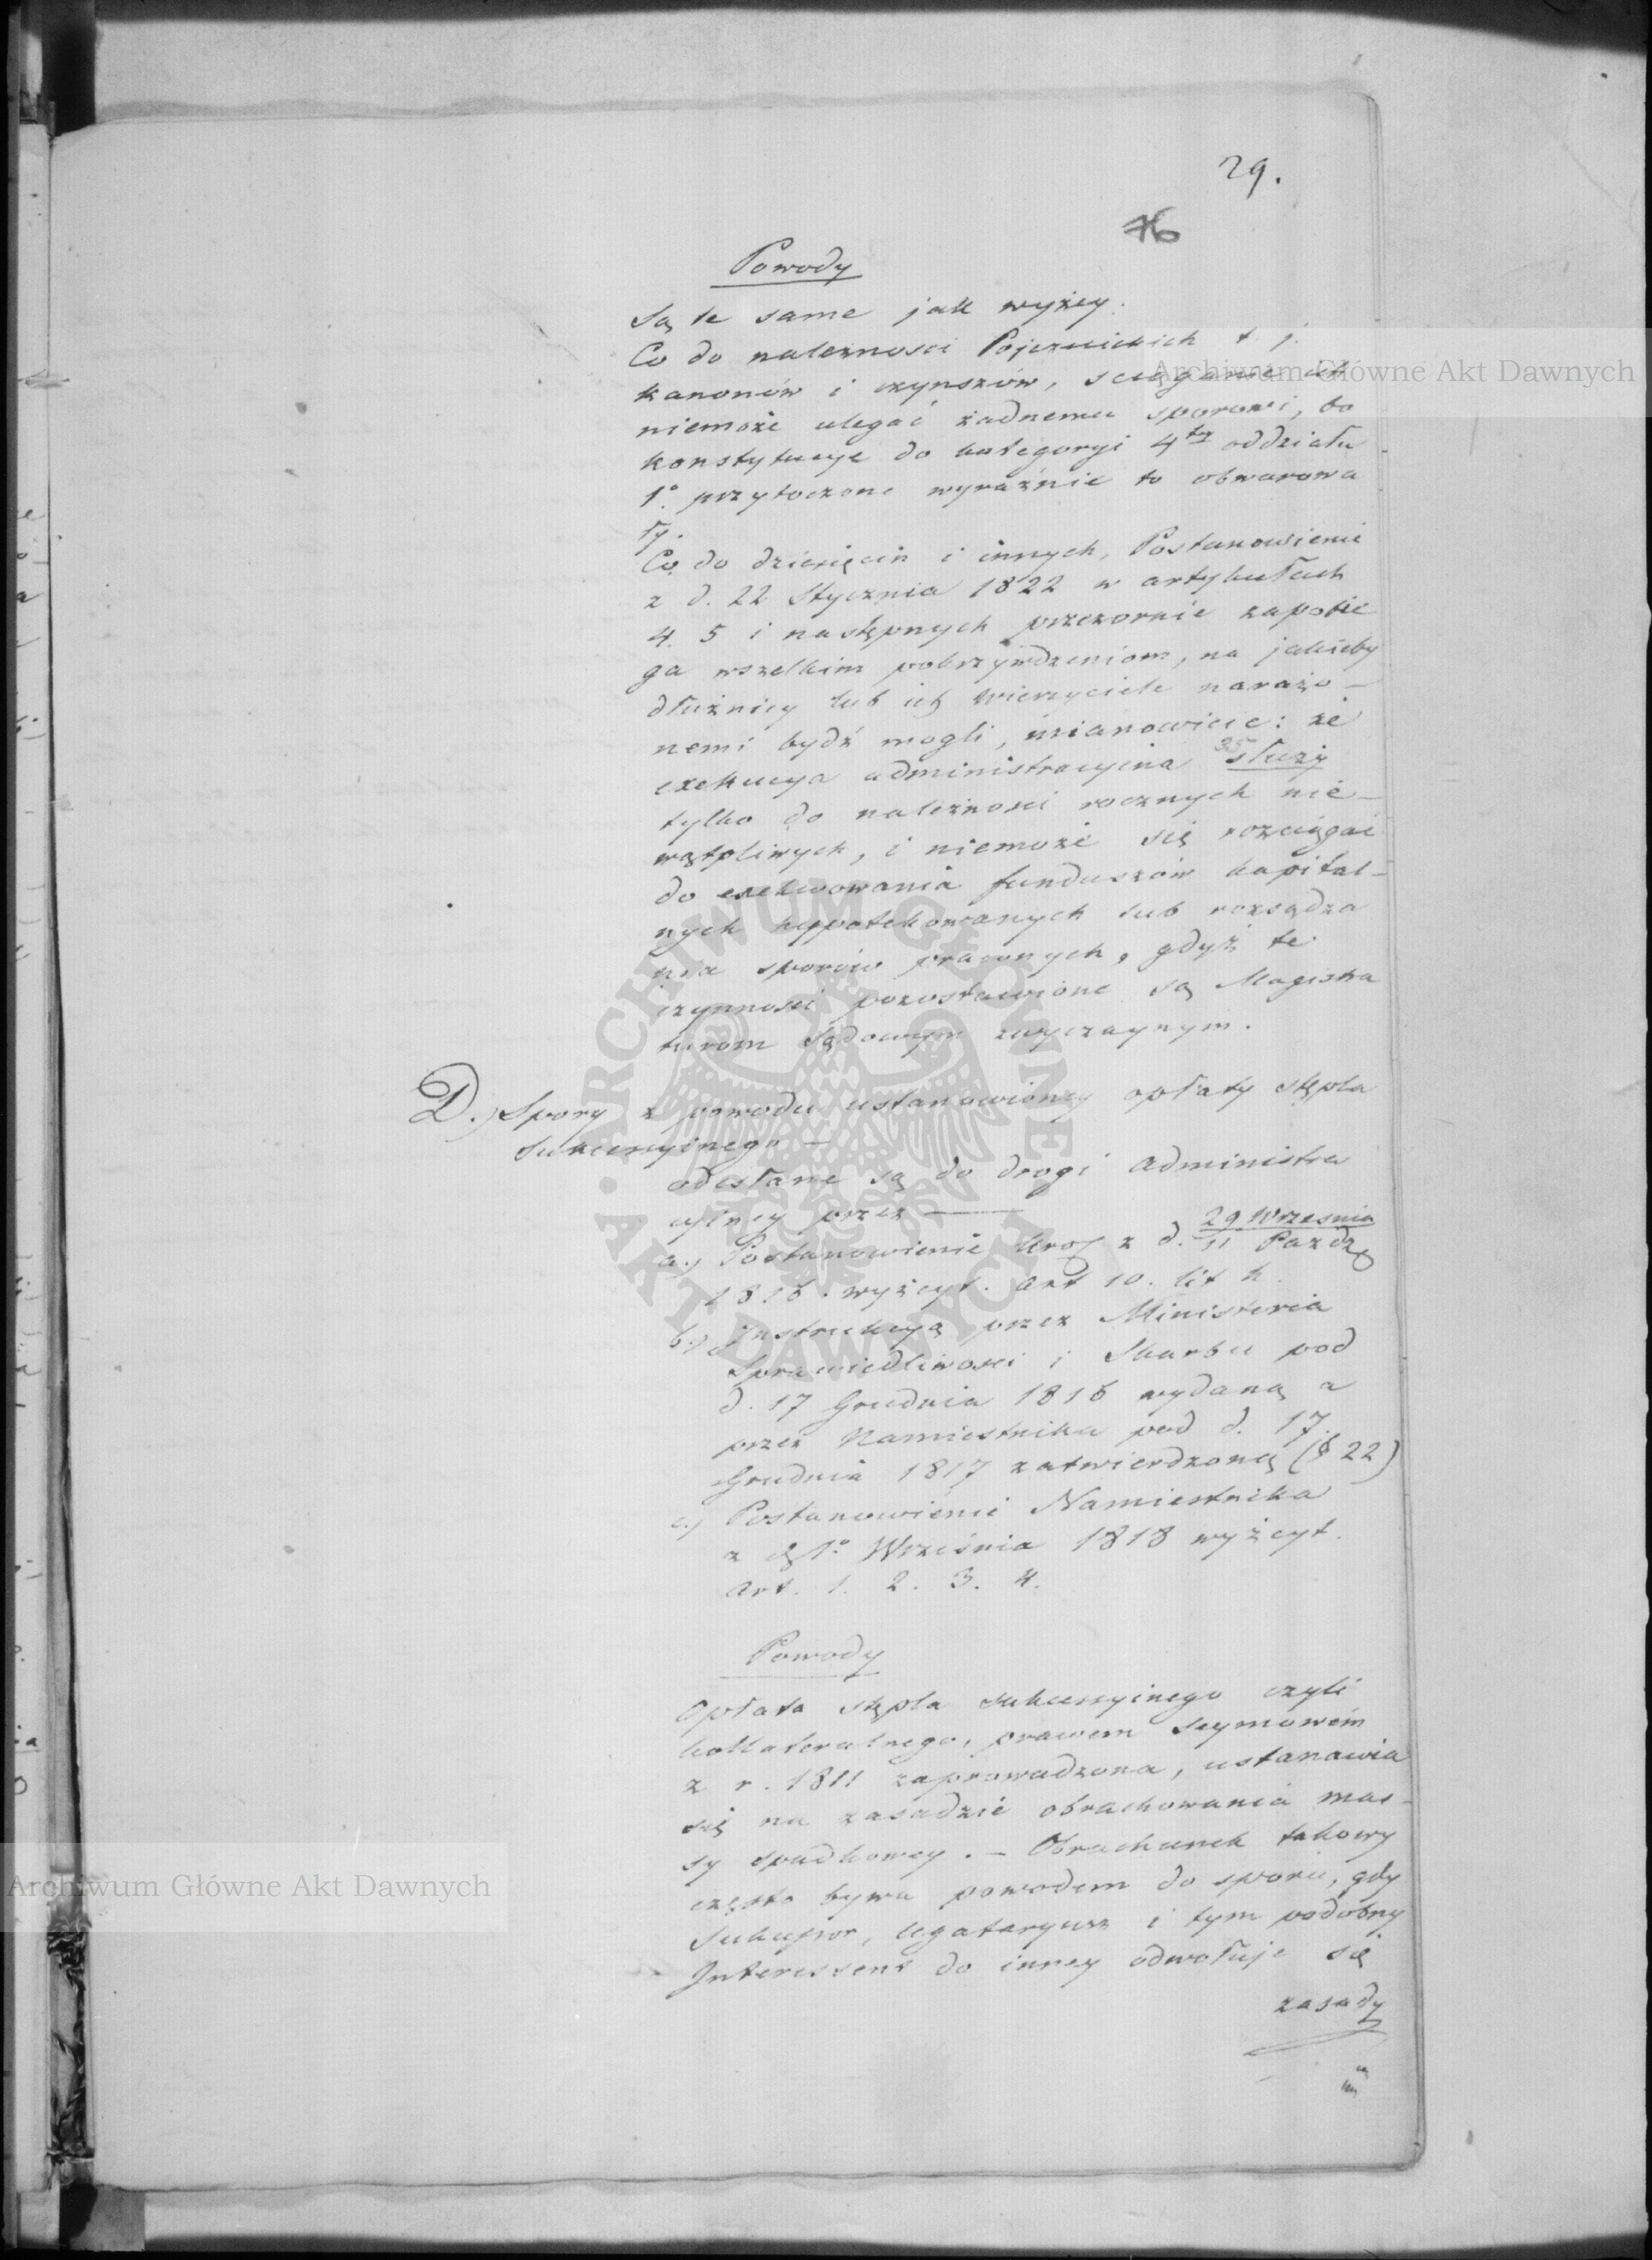 29.
76
Powody
Są te same jak wyżey.
Co do należnosci Pojezuickich t. j.
kanonów i czynszów, sciąganie ich
niemoże ulegać żadnemu sporowi, bo
konstytucye do kategoryi 4tey oddziału
1º przytoczone wyraźnie to obwarowa
ły.
Co do dziesięcin i innych, Postanowienie
z d. 22 Stycznia 1822 w artykułach
4. 5 i następnych przezornie zapobie
ga wszelkim pokrzywdzeniom, na jakieby
dłużnicy lub ich wierzyciele narażo-
nemi bydź mogli, mianowicie: że
exekucya administracyina służy
tylko do należnosci rocznych nie-
wątpliwych, i niemoże się rozciągać
do exekwowania funduszów kapital-
nych hypotekowanych lub rozsądza
nia sporów prawnych, gdyż te
czynnosci pozostawione są Magistra
turom Sądowym zwyczaynym.
D.) Spory z powodu ustanowioney opłaty stępla
Sukcessyinego —
odesłane są do drogi administra
cyiney przez —
a.) Postanowienie Król z d. 29 Wrzesnia
11 Paźdz
1816 wyżcyt. art 10. lit h.
b.) Instrukcyą przez Ministeria
Sprawiedliwosci i Skarbu pod
d. 17 Grudnia 1816 wydaną a
przez Namiestnika pod d. 17.
Grudnia 1817 zatwierdzoną (§ 22)
c.) Postanowienie Namiestnika
z d 1º Września 1818 wyżcyt.
art. 1. 2. 3. 4.
Powody
Opłata stępla sukcessyinego czyli
kollateralnego, prawem seymowém
z r. 1811 zaprowadzona, ustanawia
się na zasadzie obrachowania mas-
sy spadkowey. – Obrachunek takowy
często bywa powodem do sporu, gdy
Sukcessor, legataryusz i tym podobny
Interessent do inney odwołuje się
zasady
Archiwum Główne Akt Dawnych
Archiwum Główne Akt Dawnych
ARCHIWUM GŁÓWNE · AKT DAWNYCH ·